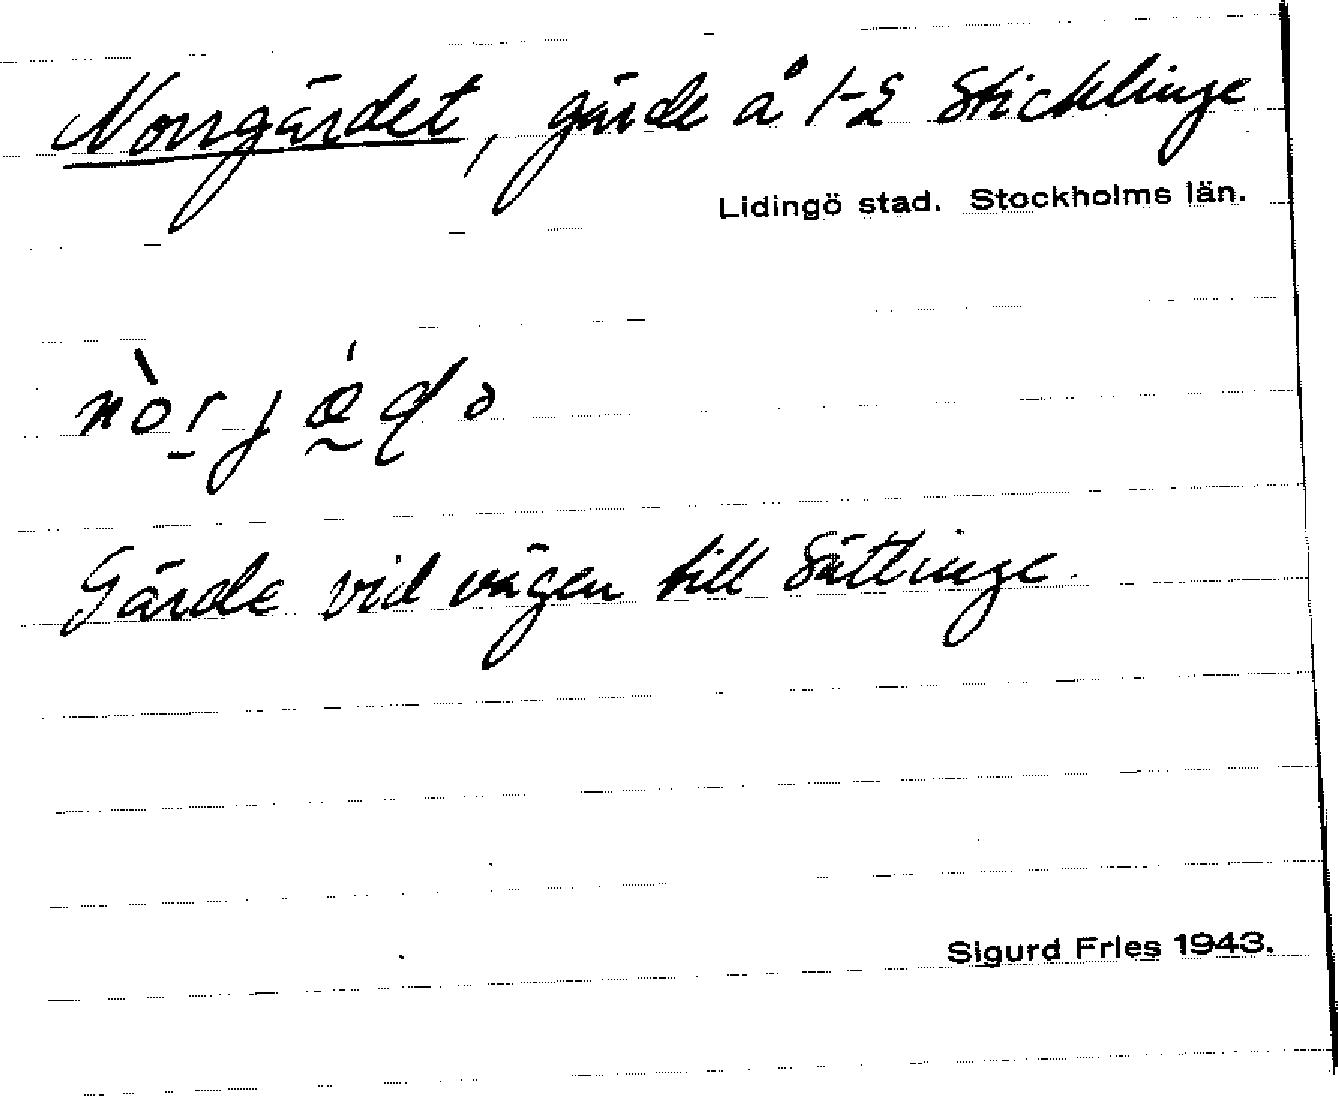 Norrgärdet, gärde å 1-2 Sticklinge
Lidingö stad. Stockholms län.
nòrjǽḍə
Gärde vid vägen till Sättinge
Sigurd Fries 1943.